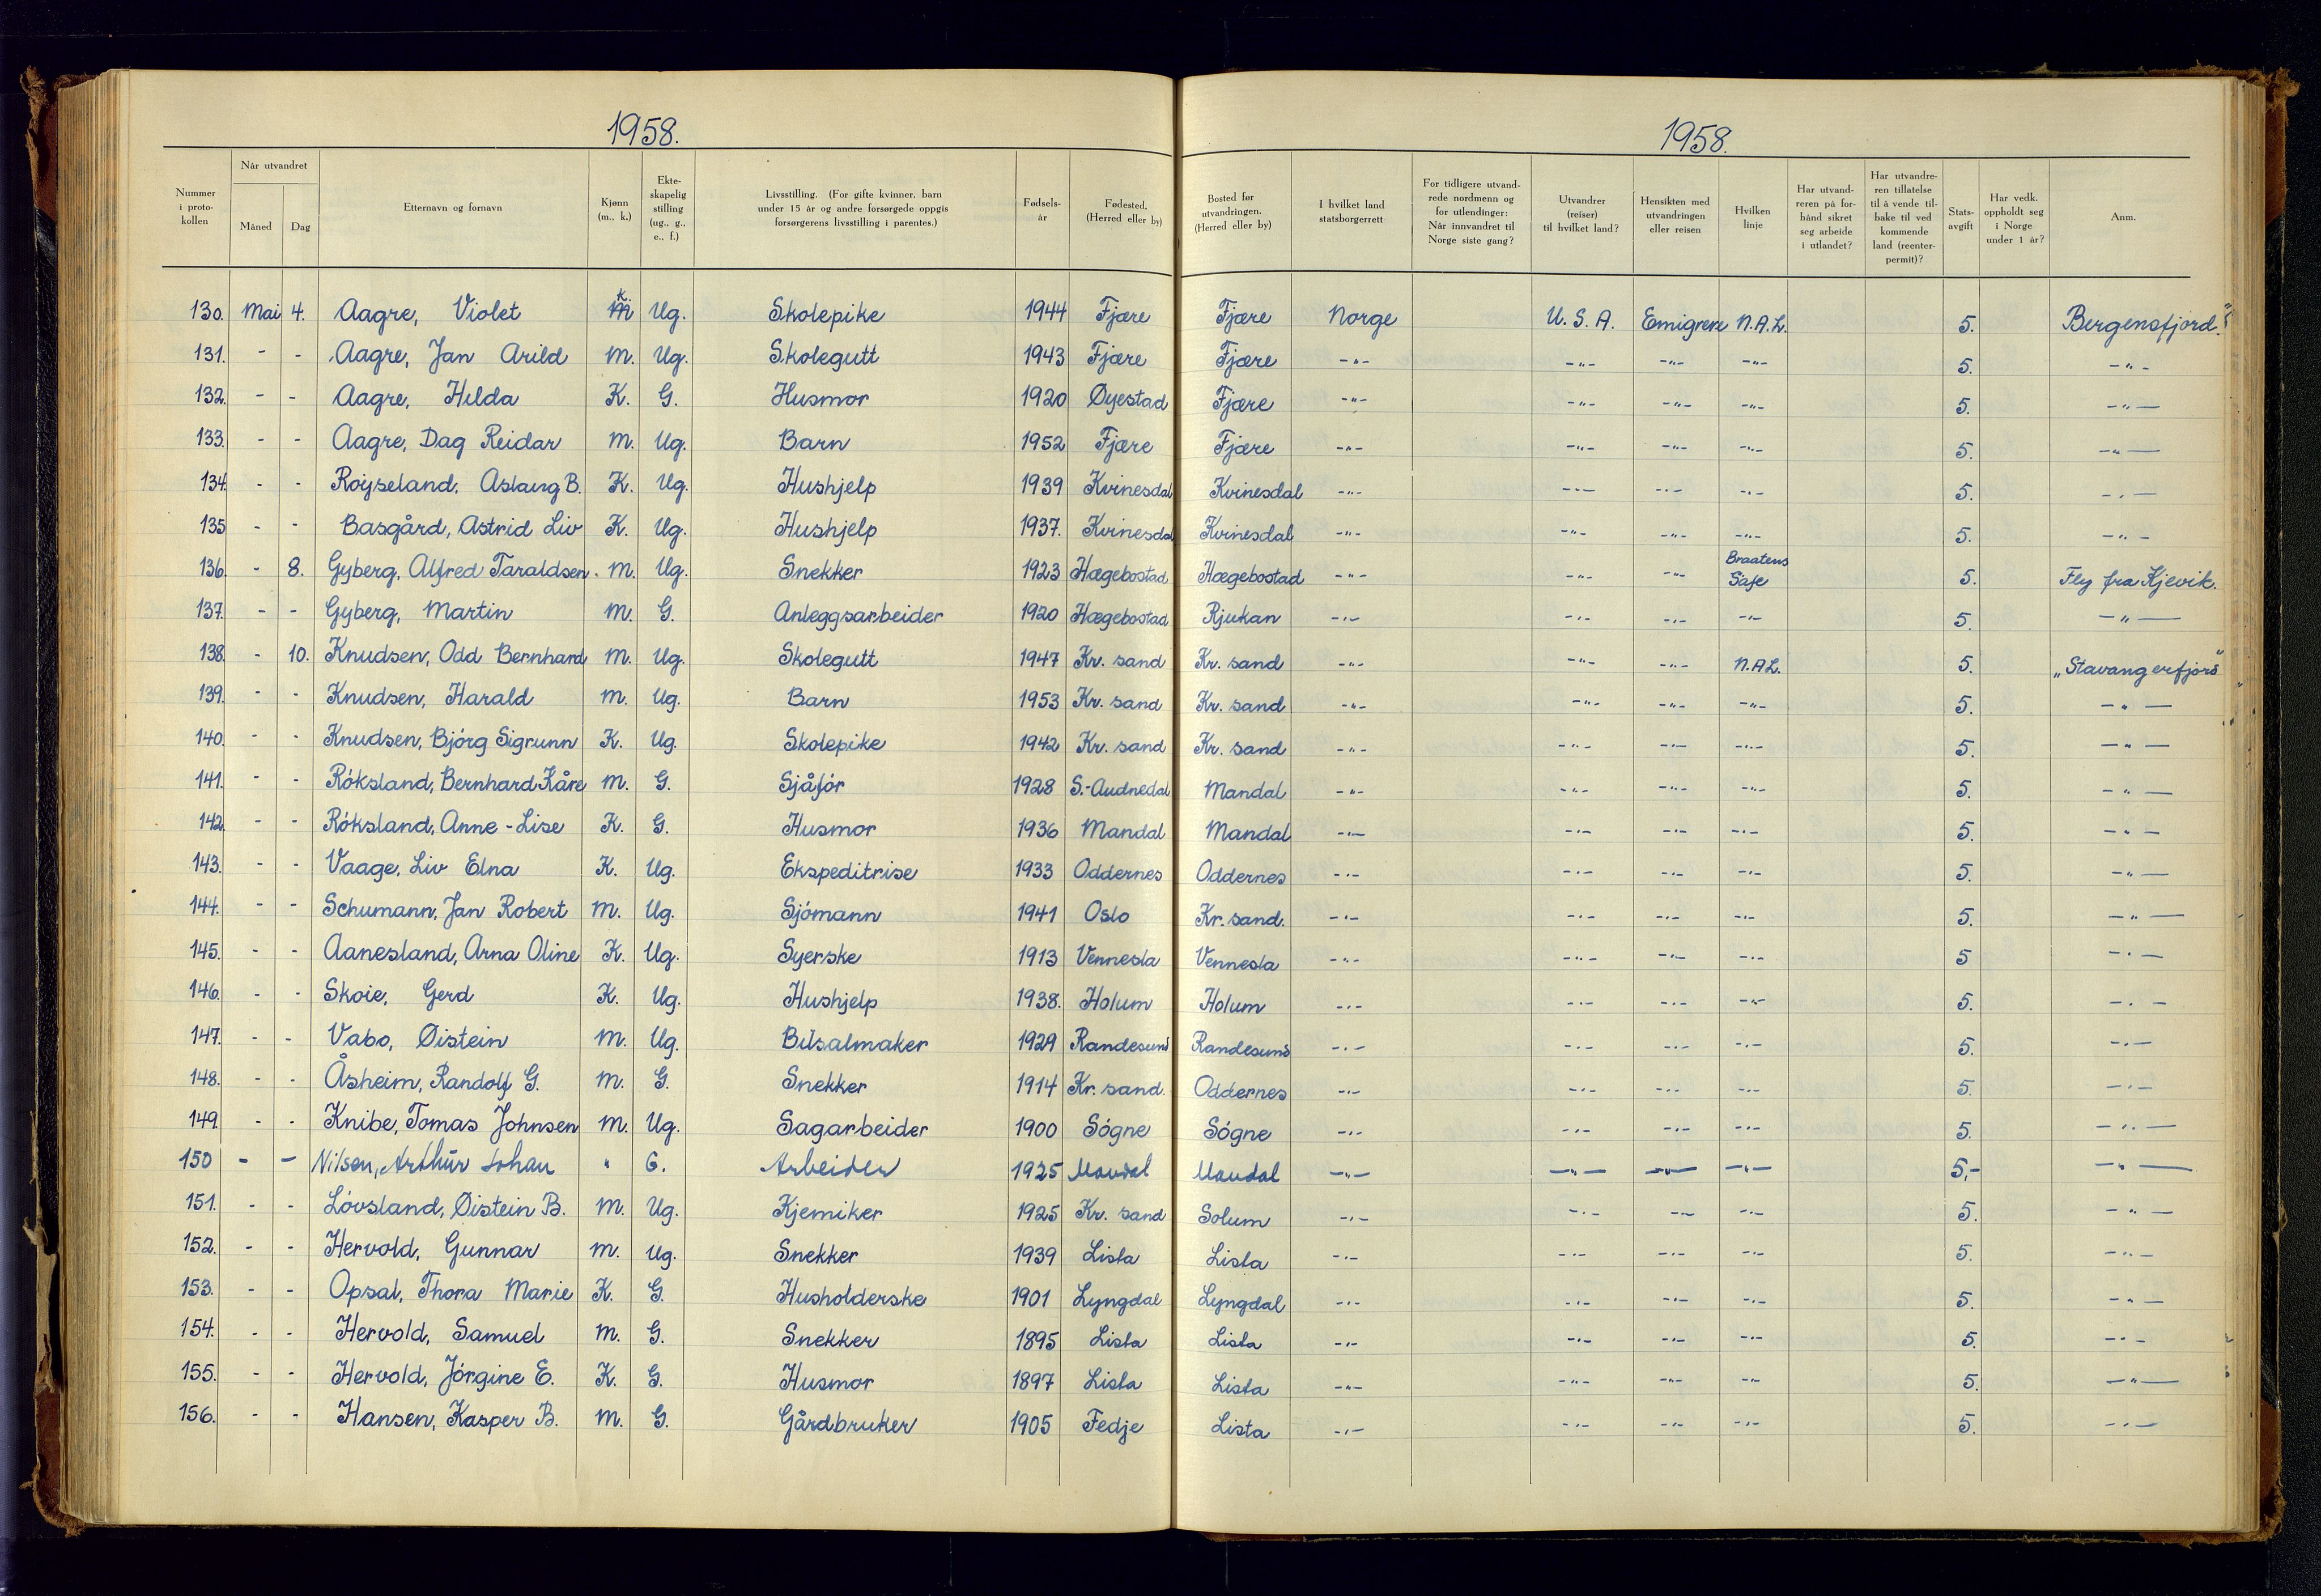 1958.
1958.
Nummer i proto-kollen | Når utvandret | Måned | Dag | Etternavn og fornavn | Kjønn (m., k.) | Ekte-skapelig stilling (ug., g., e., f.) | Livsstilling. (For gifte kvinner, barn under 15 år og andre forsørgede oppgis forsørgerens livsstilling i parentes.) | Fødsels-år | Fødested. (Herred eller by) | Bosted før utvandringen. (Herred eller by) | I hvilket land statsborgerrett | For tidligere utvand-rede nordmenn og for utlendinger: Når innvandret til Norge siste gang? | Utvandrer (reiser) til hvilket land? | Hensikten med utvandringen eller reisen | Hvilken linje | Har utvand-reren på for-hånd sikret seg arbeide i utlandet? | Har utvandre-ren tillatelse til å vende til-bake til ved kommende land (reenter-permit)? | Stats-avgift | Har vedk. oppholdt seg i Norge under 1 år? | Anm.
130. Mai 4. Aagre, Violet k Ug. Skolepike 1944 Fjære Fjære Norge U.S.A. Emigrere N.A.L. 5. Bergensfjord."
131. - - Aagre, Jan Arild M. Ug. Skolegutt 1943 Fjære Fjære -"- -"- -"- -"- 5. -"-
132. - - Aagre, Hilda K. G. Husmor 1920 Øyestad Fjære -"- -"- -"- -"- 5. -"-
133. - - Aagre, Dag Reidar M. Ug. Barn 1952 Fjære Fjære -"- -"- -"- -"- 5. -"-
134. - - Røyseland, Aslaug B. K. Ug. Hushjelp 1939 Kvinesdal Kvinesdal -"- -"- -"- -"- 5. -"-
135 - - Basgård, Astrid Liv K. Ug. Hushjelp 1937. Kvinesdal Kvinesdal -"- -"- -"- -"- 5. -"-
136. - 8. Gyberg, Alfred Taraldsen. M. Ug. Snekker 1923 Hægebostad Hægebostad -"- -"- -"- Braatens Safe 5. Fly fra Kjevik.
137. - - Gyberg, Martin M. G. Anleggsarbeider 1920 Hægebostad Rjukan -"- -"- -"- -"- 5. -"-
138. - 10. Knudsen, Odd Bernhard M. Ug. Skolegutt 1947 Kr. sand Kr. sand -"- -"- -"- N.A.L. 5. "Stavangerfjord"
139. - - Knudsen, Harald M. Ug. Barn 1953 Kr. sand Kr. sand -"- -"- -"- -"- 5. -"-
140. - - Knudsen, Bjørg Sigrunn K. Ug. Skolepike 1942 Kr. sand Kr. sand -"- -"- -"- -"- 5. -"-
141. - - Røksland, Bernhard Kåre M. G. Sjåfør 1928 S.-Audnedal Mandal -"- -"- -"- -"- 5. -"-
142. - - Røksland, Anne-Lise K. G. Husmor 1936 Mandal Mandal -"- -"- -"- -"- 5. -"-
143. - - Vaage, Liv Elna K. Ug. Ekspeditrise 1933 Oddernes Oddernes -"- -"- -"- -"- 5. -"-
144. - - Schumann, Jan Robert M. Ug. Sjømann 1941 Oslo Kr. sand. -"- -"- -"- -"- 5. -"-
145. - - Aanesland, Arna Oline K. Ug. Syerske 1913 Vennesla Vennesla -"- -"- -"- -"- 5 -"-
146. - - Skoie, Gerd K. Ug. Hushjelp 1938. Holum Holum -"- -"- -"- -"- 5. -"-
147. - - Vabo, Øistein M. Ug. Bilsalmaker 1929 Randesund Randesund -"- -"- -"- -"- 5. -"-
148. - - Åsheim, Randolf G. M. G. Snekker 1914 Kr. sand. Oddernes -"- -"- -"- -"- 5. -"-
149. - - Knibe, Tomas Johnsen M. Ug. Sagarbeider 1900 Søgne Søgne -"- -"- -"- -"- 5. -"-
150 - - Nilsen, Arthur Johan " G. Arbeider 1925 Mandal Mandal -"- -"- -"- -"- 5,- -"-
151. - - Løvsland, Øistein B. M. Ug. Kjemiker 1925 Kr. sand Solum -"- -"- -"- -"- 5. -"-
152. - - Hervold, Gunnar M. Ug. Snekker 1939 Lista Lista -"- -"- -"- -"- 5. -"-
153. - - Opsal, Thora Marie K. G. Husholderske 1901 Lyngdal Lyngdal -"- -"- -"- -"- 5. -"-
154. - - Hervold, Samuel M. G. Snekker 1895 Lista Lista -"- -"- -"- -"- 5. -"-
155. - - Hervold, Jørgine E. K. G. Husmor 1897 Lista Lista -"- -"- -"- -"- 5. -"-
156. - - Hansen, Kasper B. M. G. Gårdbruker 1905 Fedje Lista -"- -"- -"- -"- 5. -"-